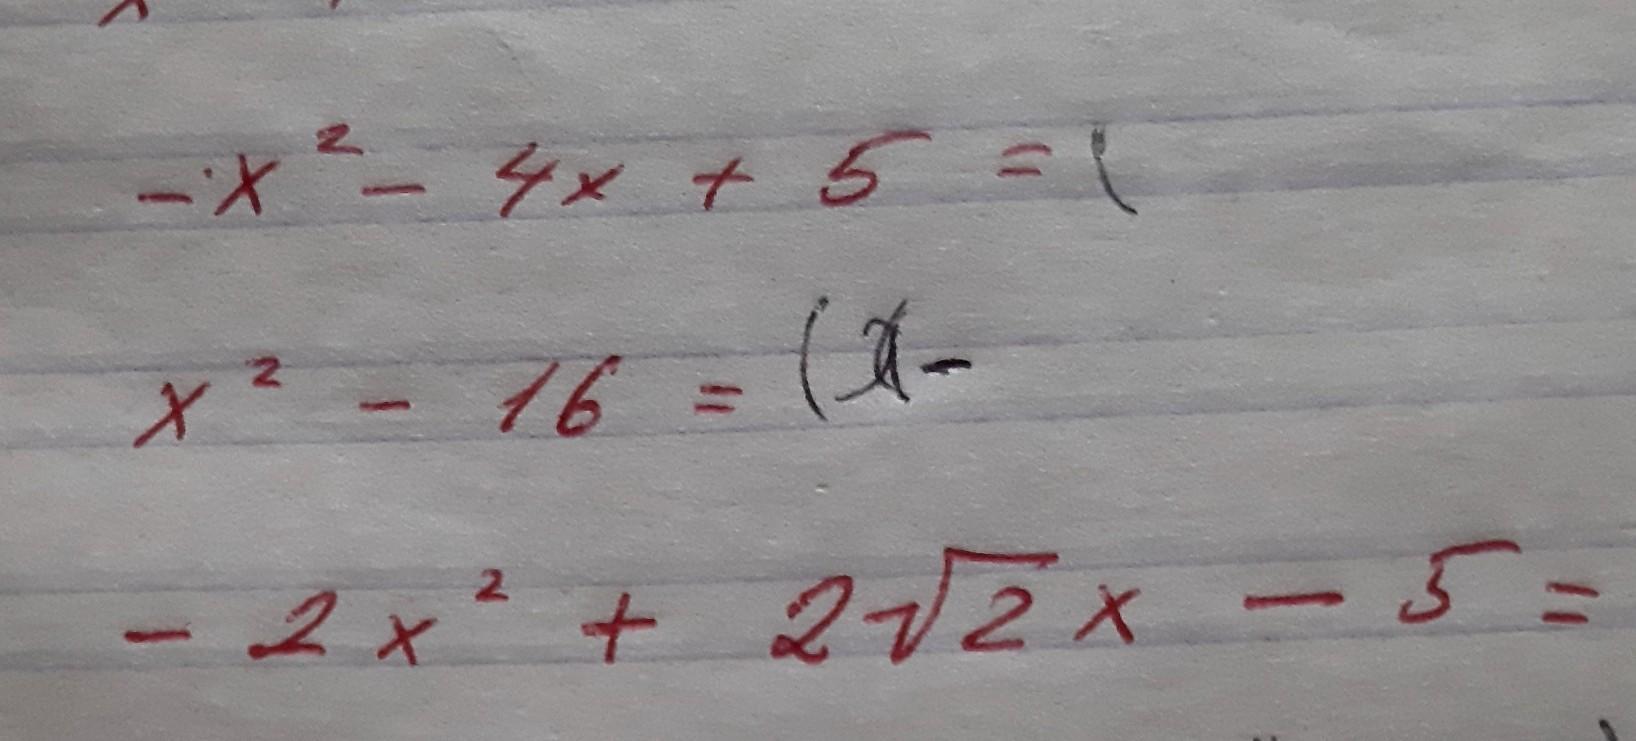 -x² - 4x + 5 = (
x² - 16 = (x-
- 2x² + 2√2x - 5 =